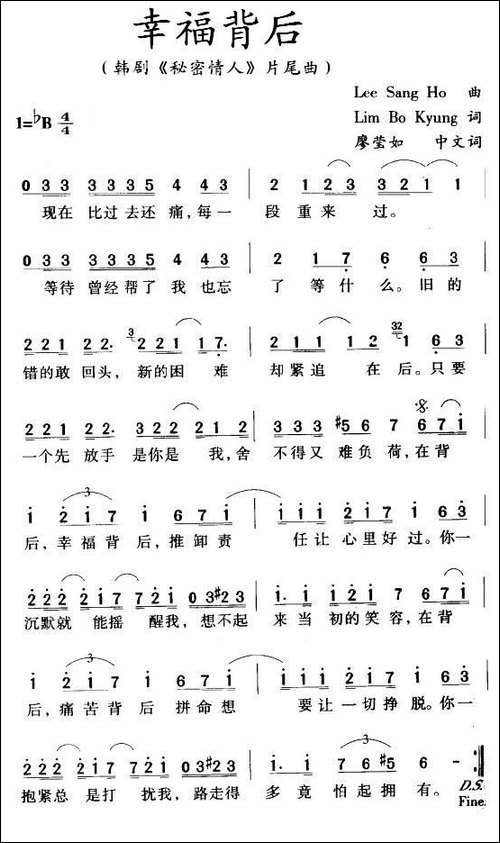 幸福背后
（韩剧《秘密情人》片尾曲）
Lee Sang Ho 曲
1=♭B 4/4
Lim Bo Kyung 词
廖莹如 中文词
0 3 3 3 3 3 5 4 4 3 | 2 1 2 3 3 2 1 1
现在 比过去还 痛，每一 段 重来 过。
0 3 3 3 3 3 5 4 4 3 | 2 1 7 6 6 3
等待 曾经帮了 我 也忘 了 等什 么。旧的
2 2 1 2 2. 3 2 2 1 2 1 7. | 2 1 1 1 2 32 1 6 3
错的敢 回头，新的困 难 却紧追 在 后。只要
2 2 1 2 2. 3 2 2 2 2 1 2 | 3 3 3 #5 6 7 6 7 1
一个先 放手 是你是 我，舍 不得又 难负 荷，在背
1 2 1 7 1 6 7 1 | 1 1 2 1 7 6 3
后，幸福背 后，推卸责 任让 心里好 过。你一
2 2 2 2 1 7 7 2 1 0 3 #2 3 | 1. 1 1 2 1 7 6 7 1
沉默就 能摇 醒我，想不起 来当 初的笑 容，在背
1 2 1 7 1 6 7 1 | 1 1 2 1 7 6 3
后，痛苦背 后 拼命想 要让 一切挣 脱。你一
2 2 2 2 1 7 7 2 1 0 3 #2 3 | 1. 1 7 6 #5 6 -
抱紧总 是打 扰我，路走得 多 竟 怕起拥 有。
D.S.
Fine.